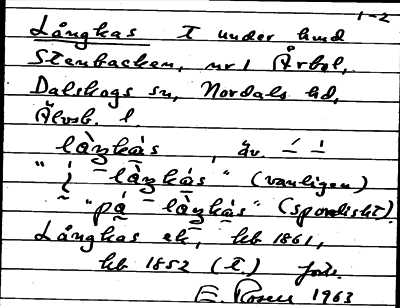 1-2
Långkas T under hmd
Stenbacken, nr 1 Årbol,
Dalskogs sn, Nordals hd,
Älvsb. l.
làŋkàs, äv. ´ ´
"i làŋkàs" (vanligen)
"på làŋkàs" (sporadiskt).
Långkas ek, hb 1861,
hb 1852 (T.)
E. Rosen 1963